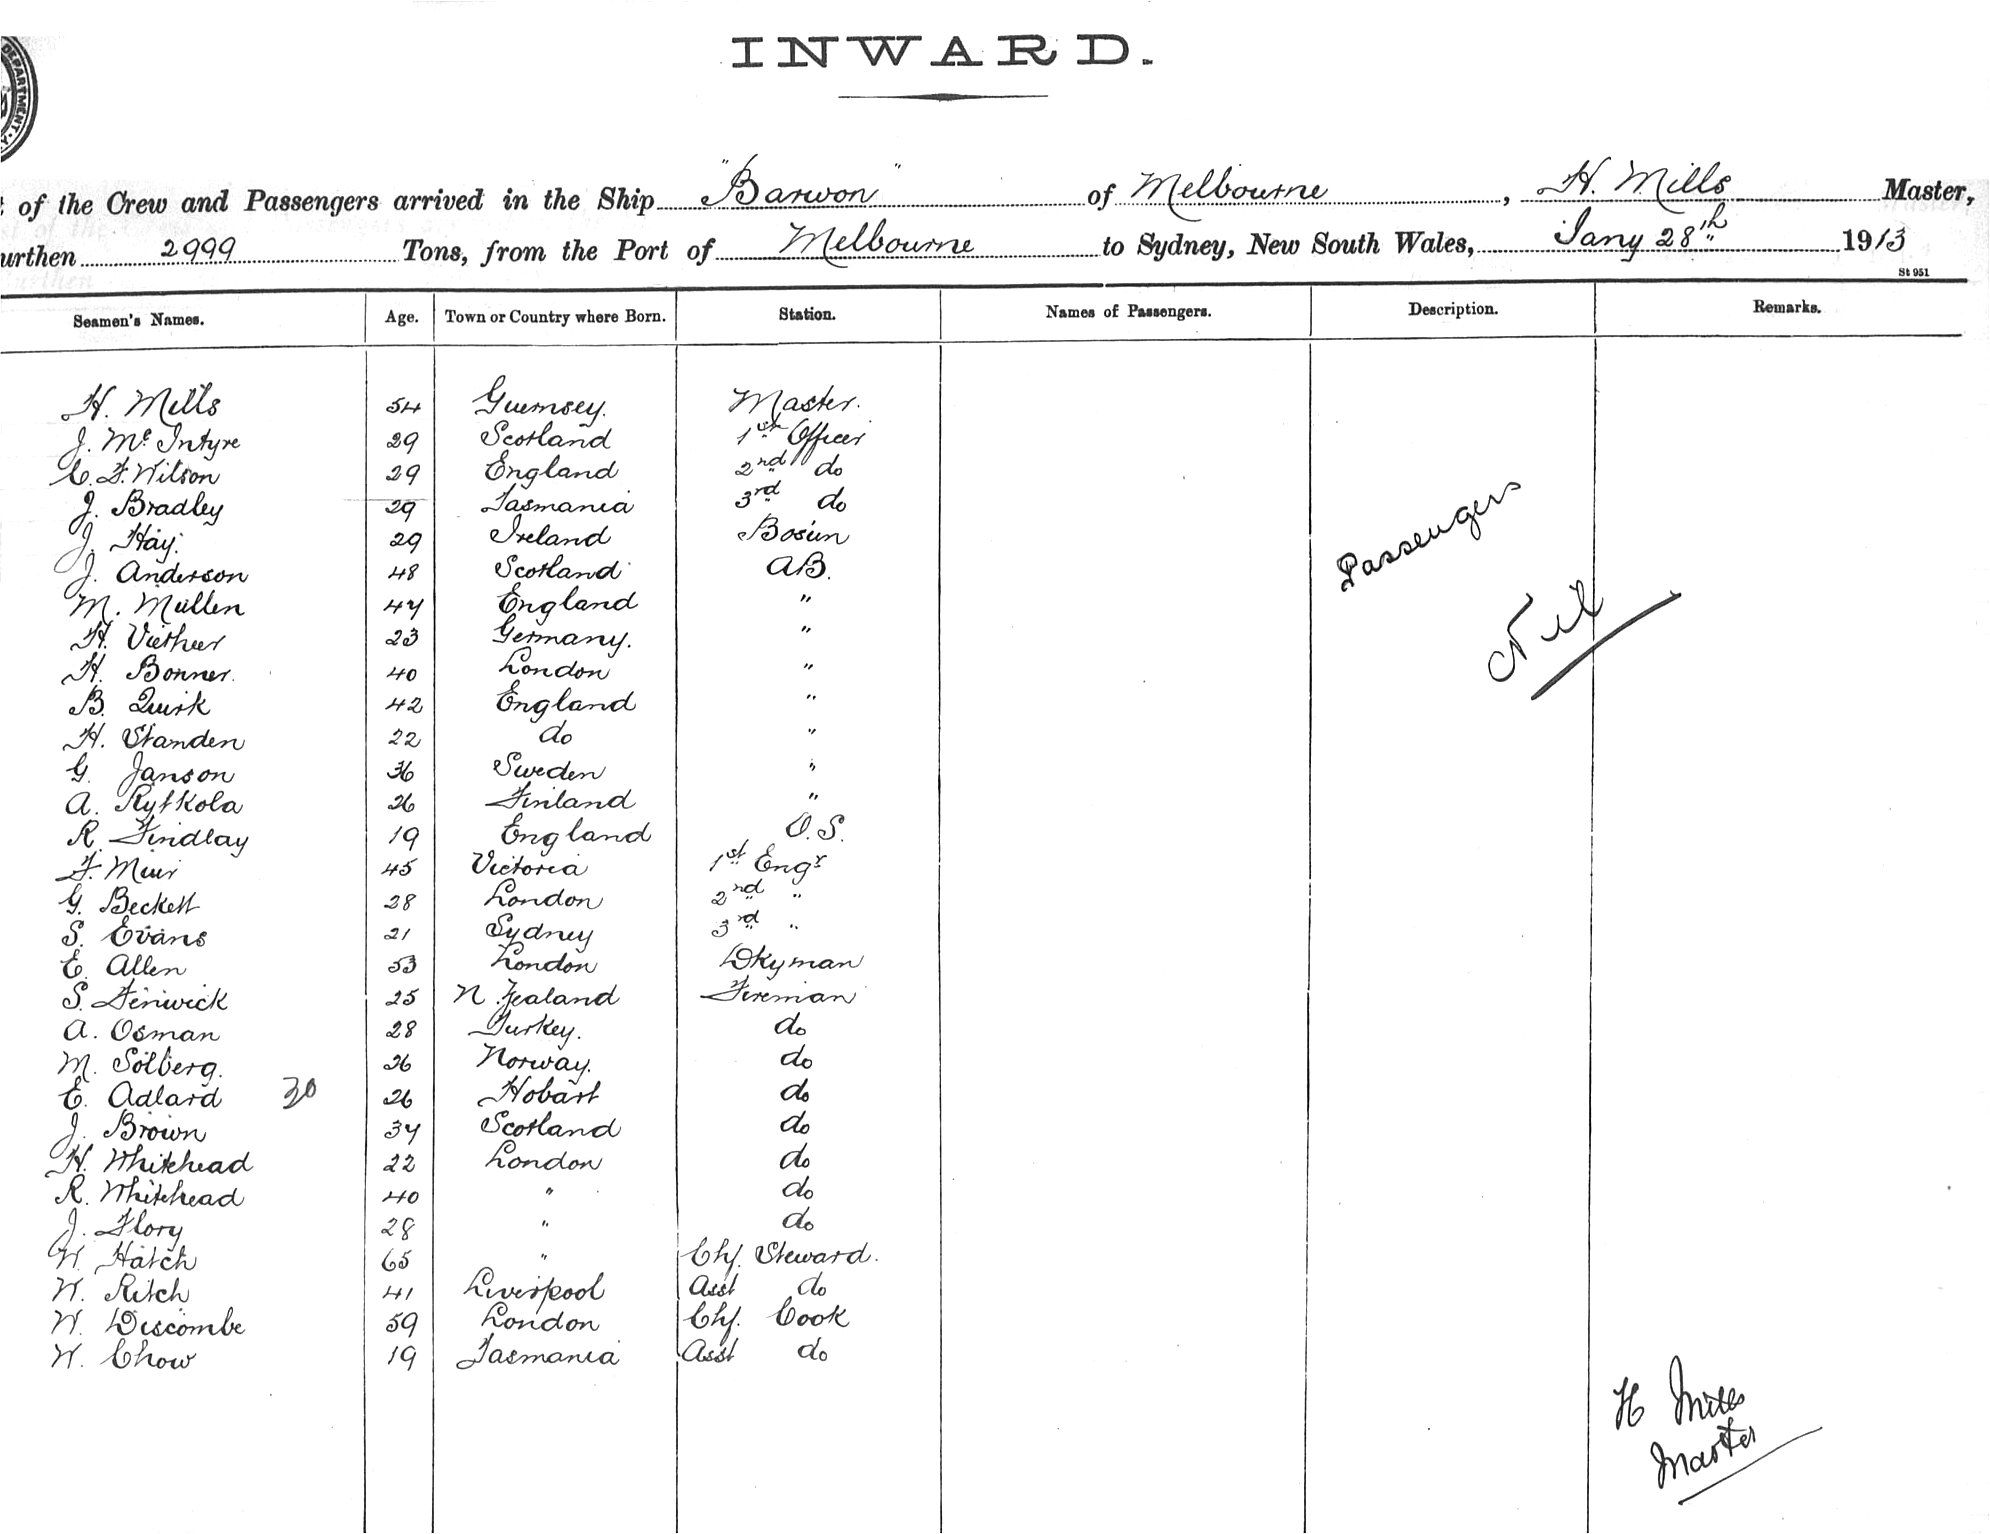 INWARD.
of the Crew and Passengers arrived in the Ship "Barwon" of Melbourne, H. Mills Master,
urthen 2999 Tons, from the Port of Melbourne to Sydney, New South Wales, Jany 28th 1913
St 951
Seamen's Names. Age. Town or Country where Born. Station. Names of Passengers. Description. Remarks.
H. Mills 54 Guernsey. Master.
J. McIntyre 29 Scotland 1st Officer
C. F. Wilson 29 England 2nd do
J. Bradley 29 Tasmania 3rd do
J. Hay. 29 Ireland Bosun
J. Anderson 48 Scotland AB.
M. Mullen 47 England "
H. Viether 23 Germany. "
H. Bonner. 40 London "
B. Quirk 42 England "
H. Standen 22 do "
G. Janson 36 Sweden "
A. Rytkola 26 Finland "
R. Findlay 19 England O.S.
F. Muir 45 Victoria 1st Engr
G. Beckett 28 London 2nd "
S. Evans 21 Sydney 3rd "
E. Allen 53 London Dkyman
S. Fenwick 25 N. Zealand Fireman
A. Osman 28 Turkey. do
M. Solberg. 26 Norway. do
E. Adlard 30 26 Hobart do
J. Brown 37 Scotland do
H. Whitehead 22 London do
R. Whitehead 40 " do
J. Flory 28 " do
W. Hatch 65 " Chf. Steward.
W. Ritch 41 Liverpool Asst do
W. Discombe 59 London Chf. Cook
W. Chow 19 Tasmania Asst do
Passengers
Nil
H Mills
Master